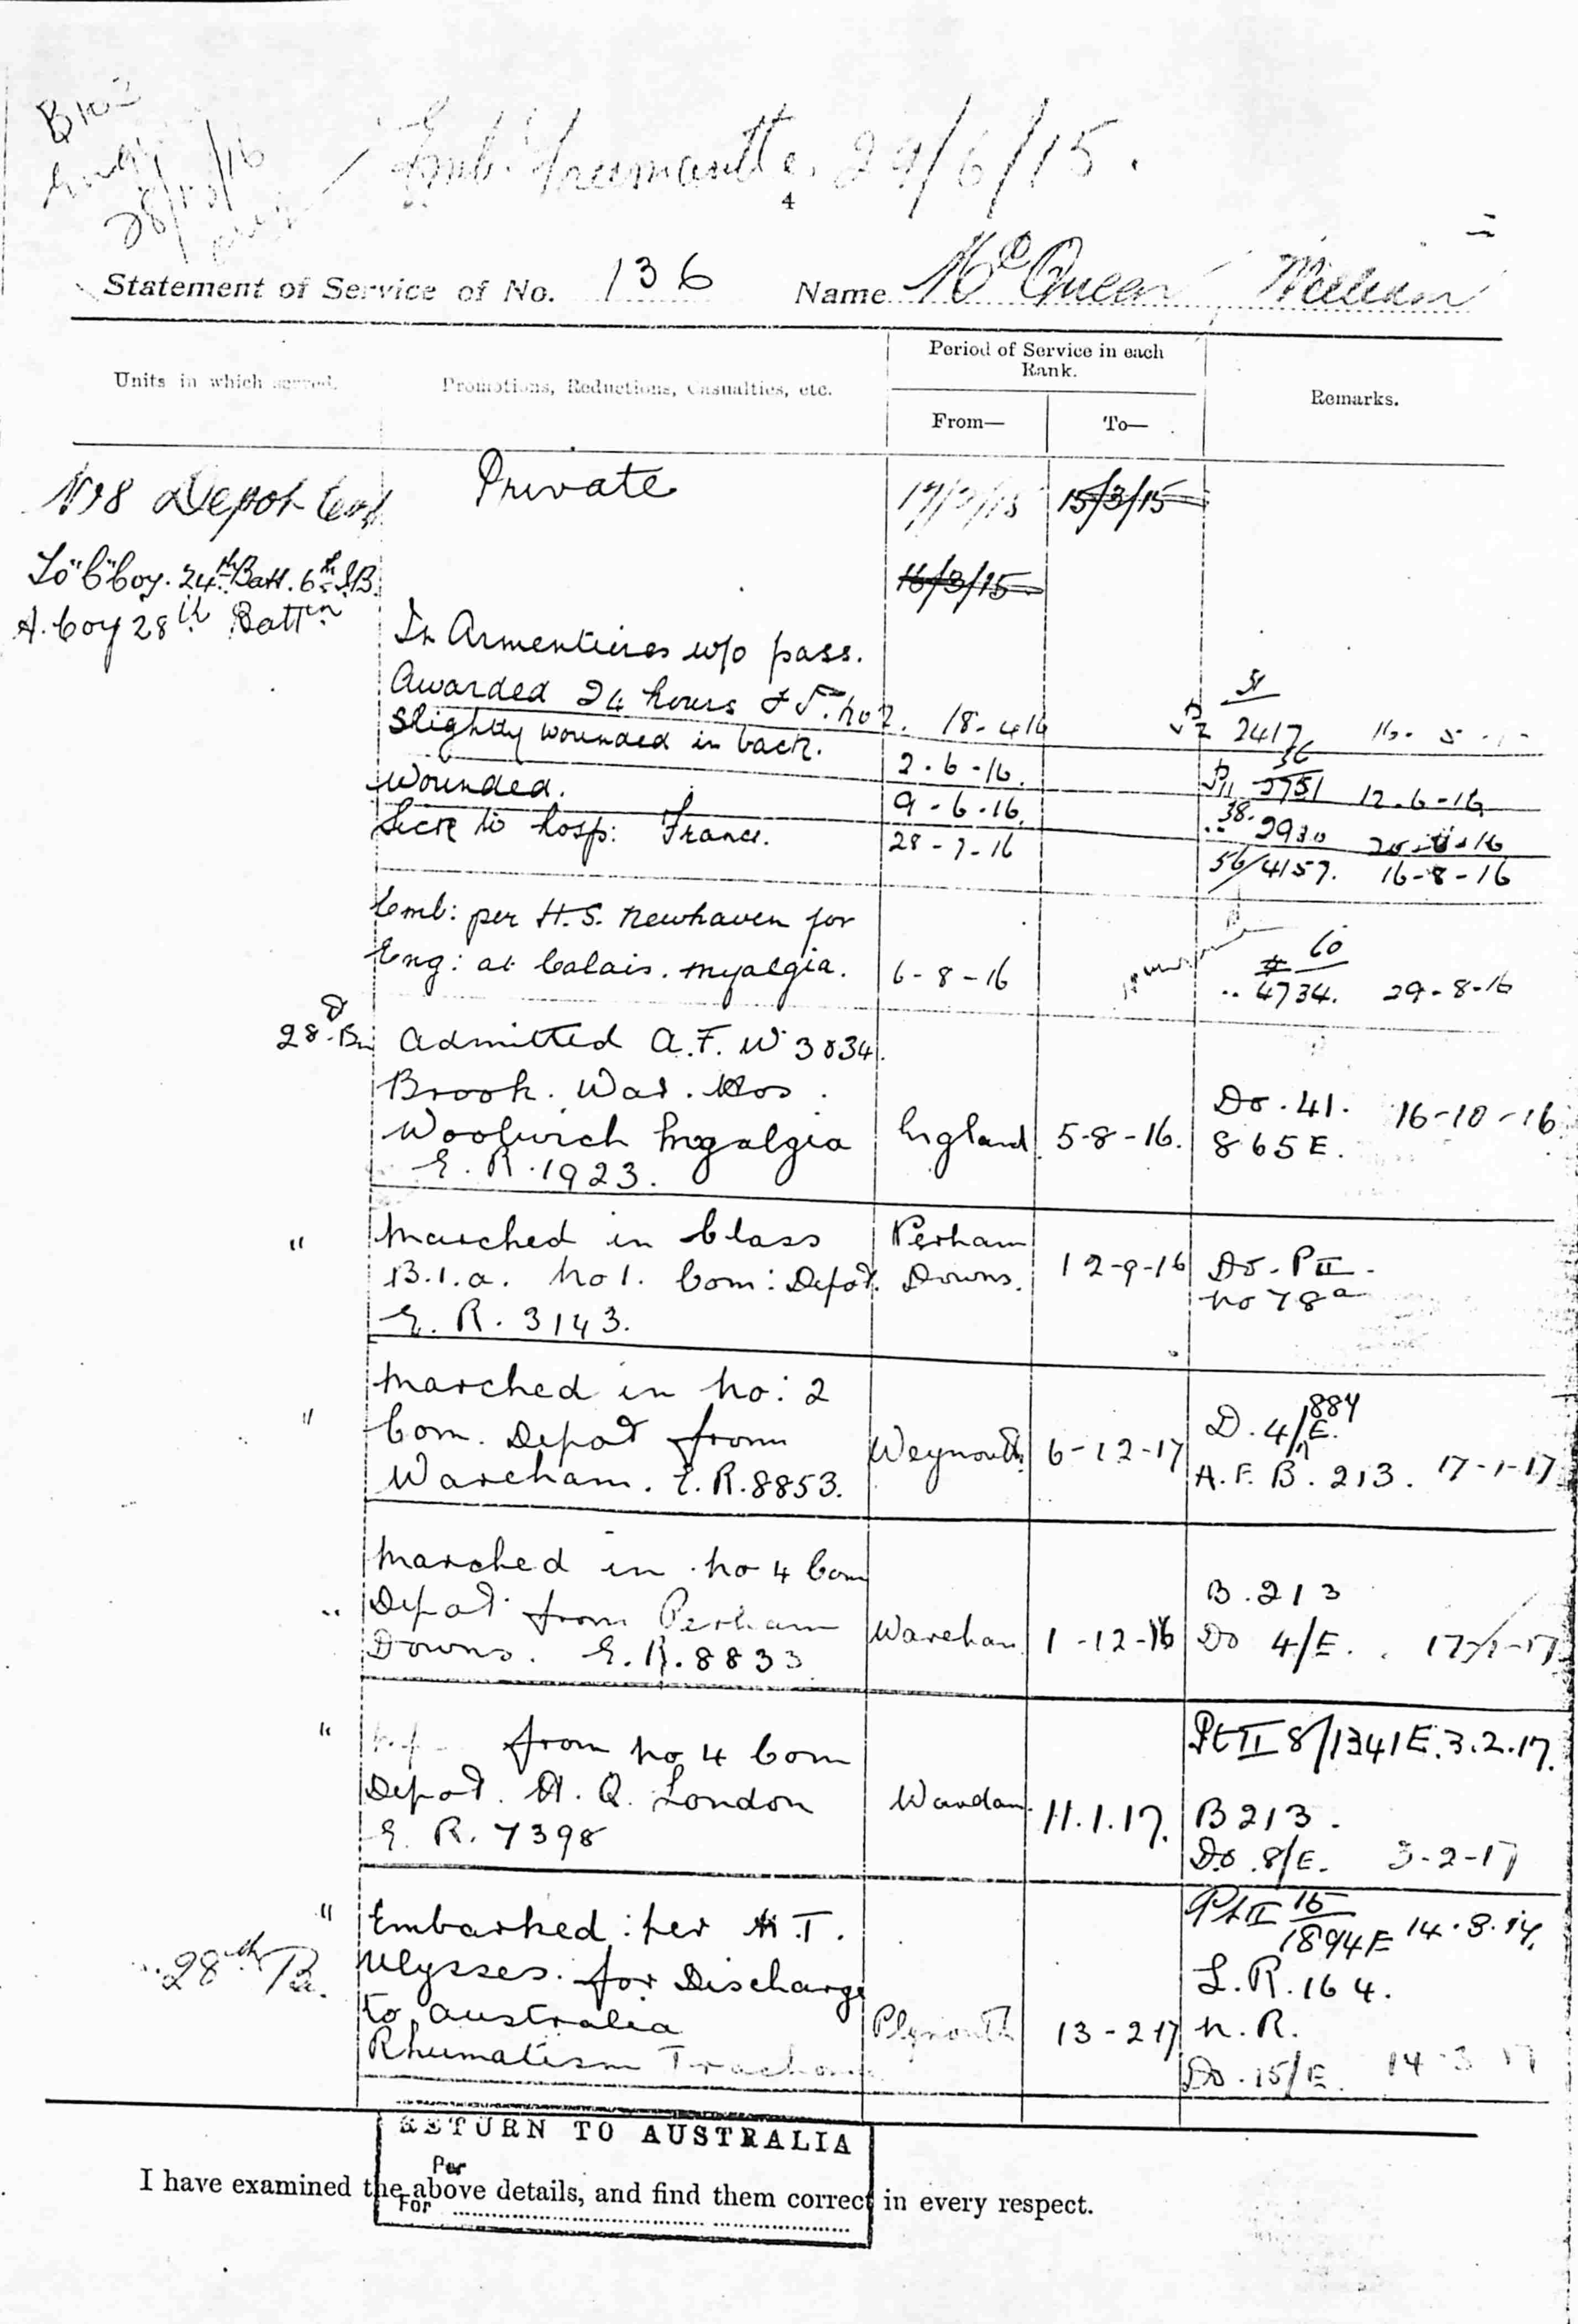 B103
28/10/16
Emb. Fremantle. 29/6/15.
4
Statement of Service of No. 136 Name McQueen, William
Units in which served.
Promotions, Reductions, Casualties, etc.
Period of Service in each Rank.
From—
To—
Remarks.
No 8 Depot Private 15/3/15
"C" Coy. 24th Batt. 6th I.B. 16/3/15
A. Coy 28th Battn
In Armentieres w/o pass.
Awarded 24 hours F.P. no 2. 18-4-16 2417
Slightly wounded in back. 2-6-16. 12-6-16
Wounded. 9-6-16. 38. 2930
Sick to hosp: France. 28-7-16 56/4157. 16-8-16
Emb: per H.S. Newhaven for
Eng: at Calais. Myalgia. 6-8-16 60 4734. 29-8-16
28 Bn Admitted A.F. W 3034.
Brook. War. Hos.
Woolwich Myalgia England 5-8-16. Do. 41. 865E. 16-10-16
E.R. 1923.
" Marched in Class Perham
B.1.a. No 1. Com: Depot. Downs. 12-9-16 Do. P II. No 78a
E.R. 3143.
" Marched in No: 2
Com. Depot from Weymouth 6-12-17 D. 4/E. 884
Wareham. E.R. 8853. A.F. B. 213. 17-1-17
" Marched in No 4 Com
Depot from Perham Wareham 1-12-16 B. 213
Downs. E.R. 8833 Do 4/E. 17-1-17
" from No 4 Com Pt II 8/1341E. 3.2.17.
Depot. A. Q. London 11.1.17. B 213.
E.R. 7398 Do. 8/E. 3-2-17
" Embarked: per H.T. Pt II 15/1894E 14.3.17.
28th Bn. Ulysses. for Discharge L.R. 164.
to Australia Plymouth 13-2-17 N.R.
Rheumatism Do. 15/E. 14-3-17
RETURN TO AUSTRALIA
Per
For
I have examined the above details, and find them correct in every respect.